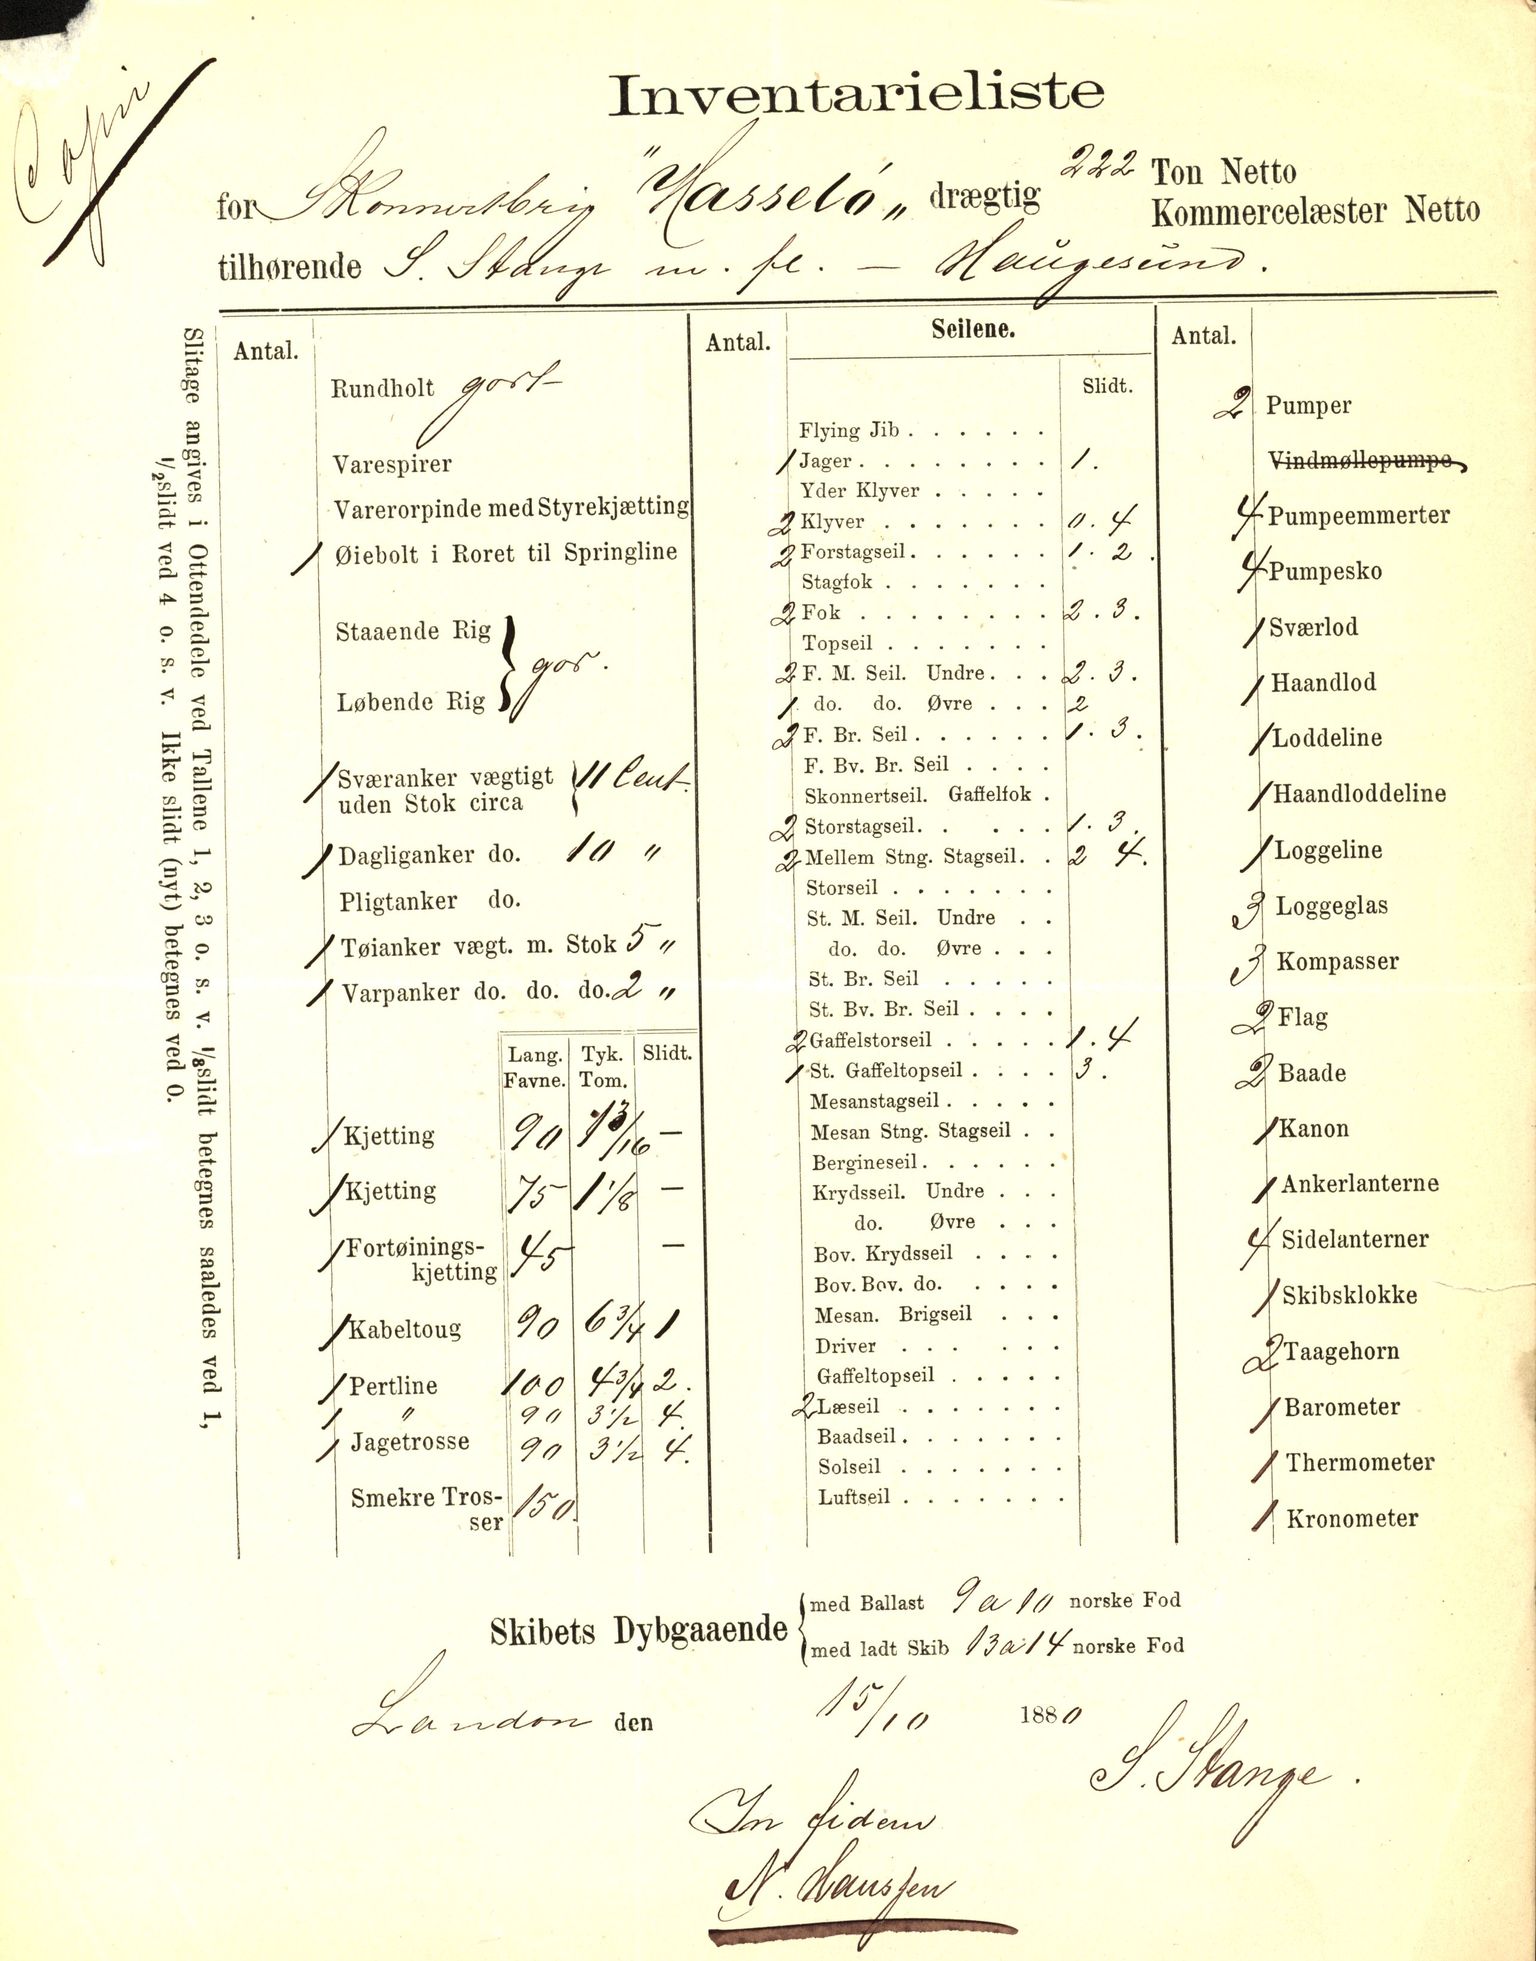 Copie
Inventarieliste
for Skonnertbrig "Hasselø" drægtig 222 Ton Netto
Kommercelæster Netto
tilhørende S. Stange m. fl. — Haugesund.
Slitage angives i Ottendedele ved Tallene 1, 2, 3 o. s. v. 1/8 slidt betegnes saaledes ved 1,
1/2 slidt ved 4 o. s. v. Ikke slidt (nyt) betegnes ved 0.
Antal.
Rundholt godt
Varespirer
Varerorpinde med Styrekjætting
1 Øiebolt i Roret til Springline
Staaende Rig
} god.
Løbende Rig
1 Sværanker vægtigt
uden Stok circa { 11 Cent.
1 Dagliganker do. 10 "
Pligtanker do.
1 Tøianker vægt. m. Stok 5 "
1 Varpanker do. do. do. 2 "
Lang. Tyk. Slidt.
Favne. Tom.
1 Kjetting 90 1 3/16 —
1 Kjetting 75 1 1/8 —
1 Fortøinings-
kjetting 45 —
1 Kabeltoug 90 6 3/4 1
1 Pertline 100 4 3/4 2.
1 " 90 3 1/2 4.
1 Jagetrosse 90 3 1/2 4.
Smekre Tros-
ser 150.
Antal. Seilene.
Slidt.
Flying Jib . . . . . .
1 Jager . . . . . . . . 1.
Yder Klyver . . . . .
2 Klyver . . . . . . . 0. 4
2 Forstagseil . . . . . . 1. 2.
Stagfok . . . . . . .
2 Fok . . . . . . . . 2. 3.
Topseil . . . . . . .
2 F. M. Seil. Undre . . . 2. 3.
1 do. do. Øvre . . . 2
2 F. Br. Seil . . . . . . 1. 3.
F. Bv. Br. Seil . . . .
Skonnertseil. Gaffelfok .
2 Storstagseil. . . . . 1. 3.
2 Mellem Stng. Stagseil. . 2 4.
Storseil . . . . . . .
St. M. Seil. Undre . .
do. do. Øvre . . .
St. Br. Seil . . . . .
St. Bv. Br. Seil . . . .
2 Gaffelstorseil . . . . . 1. 4
1 St. Gaffeltopseil . . . . 3.
Mesanstagseil . . . . .
Mesan Stng. Stagseil . .
Bergineseil . . . . . .
Krydsseil. Undre . . .
do. Øvre . . .
Bov. Krydsseil . . . .
Bov. Bov. do. . . . .
Mesan. Brigseil . . .
Driver . . . . . .
Gaffeltopseil . . . . .
2 Læseil . . . . . . .
Baadseil . . . . . . .
Solseil . . . . . . .
Luftseil . . . . . . .
Antal.
2 Pumper
Vindmøllepumpe
4 Pumpeemmerter
4 Pumpesko
1 Sværlod
1 Haandlod
1 Loddeline
1 Haandloddeline
1 Loggeline
3 Loggeglas
3 Kompasser
2 Flag
2 Baade
1 Kanon
1 Ankerlanterne
4 Sidelanterner
1 Skibsklokke
2 Taagehorn
1 Barometer
1 Thermometer
1 Kronometer
Skibets Dybgaaende { med Ballast 9 a 10 norske Fod
med ladt Skib 13 a 14 norske Fod
London den 15/10 1880
S. Stange.
In fidem
N. Hanssen